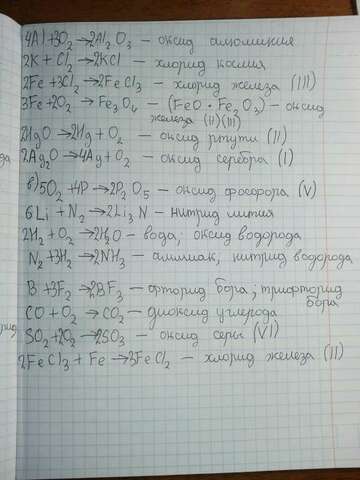 4Al+3O₂→2Al₂O₃ – оксид алюминия
2K + Cl₂→2KCl – хлорид калия
2Fe+3Cl₂→2FeCl₃ – хлорид железа (III)
3Fe+2O₂→Fe₃O₄ – (FeO·Fe₂O₃) – оксид
железа (II)(III)
2HgO→2Hg+O₂ – оксид ртути (II)
2Ag₂O→4Ag+O₂ – оксид серебра (I)
в) 5O₂+4P→2P₂O₅ – оксид фосфора (V)
6Li + N₂→2Li₃N – нитрид лития
2H₂ + O₂→2H₂O – вода; оксид водорода
N₂+3H₂→2NH₃ – аммиак, нитрид водорода
B +3F₂→2BF₃ – фторид бора; трифторид
бора
CO + O₂ → CO₂ – диоксид углерода
SO₂+2O₂→2SO₃ – оксид серы (VI)
2FeCl₃ + Fe →3FeCl₂ – хлорид железа (II)